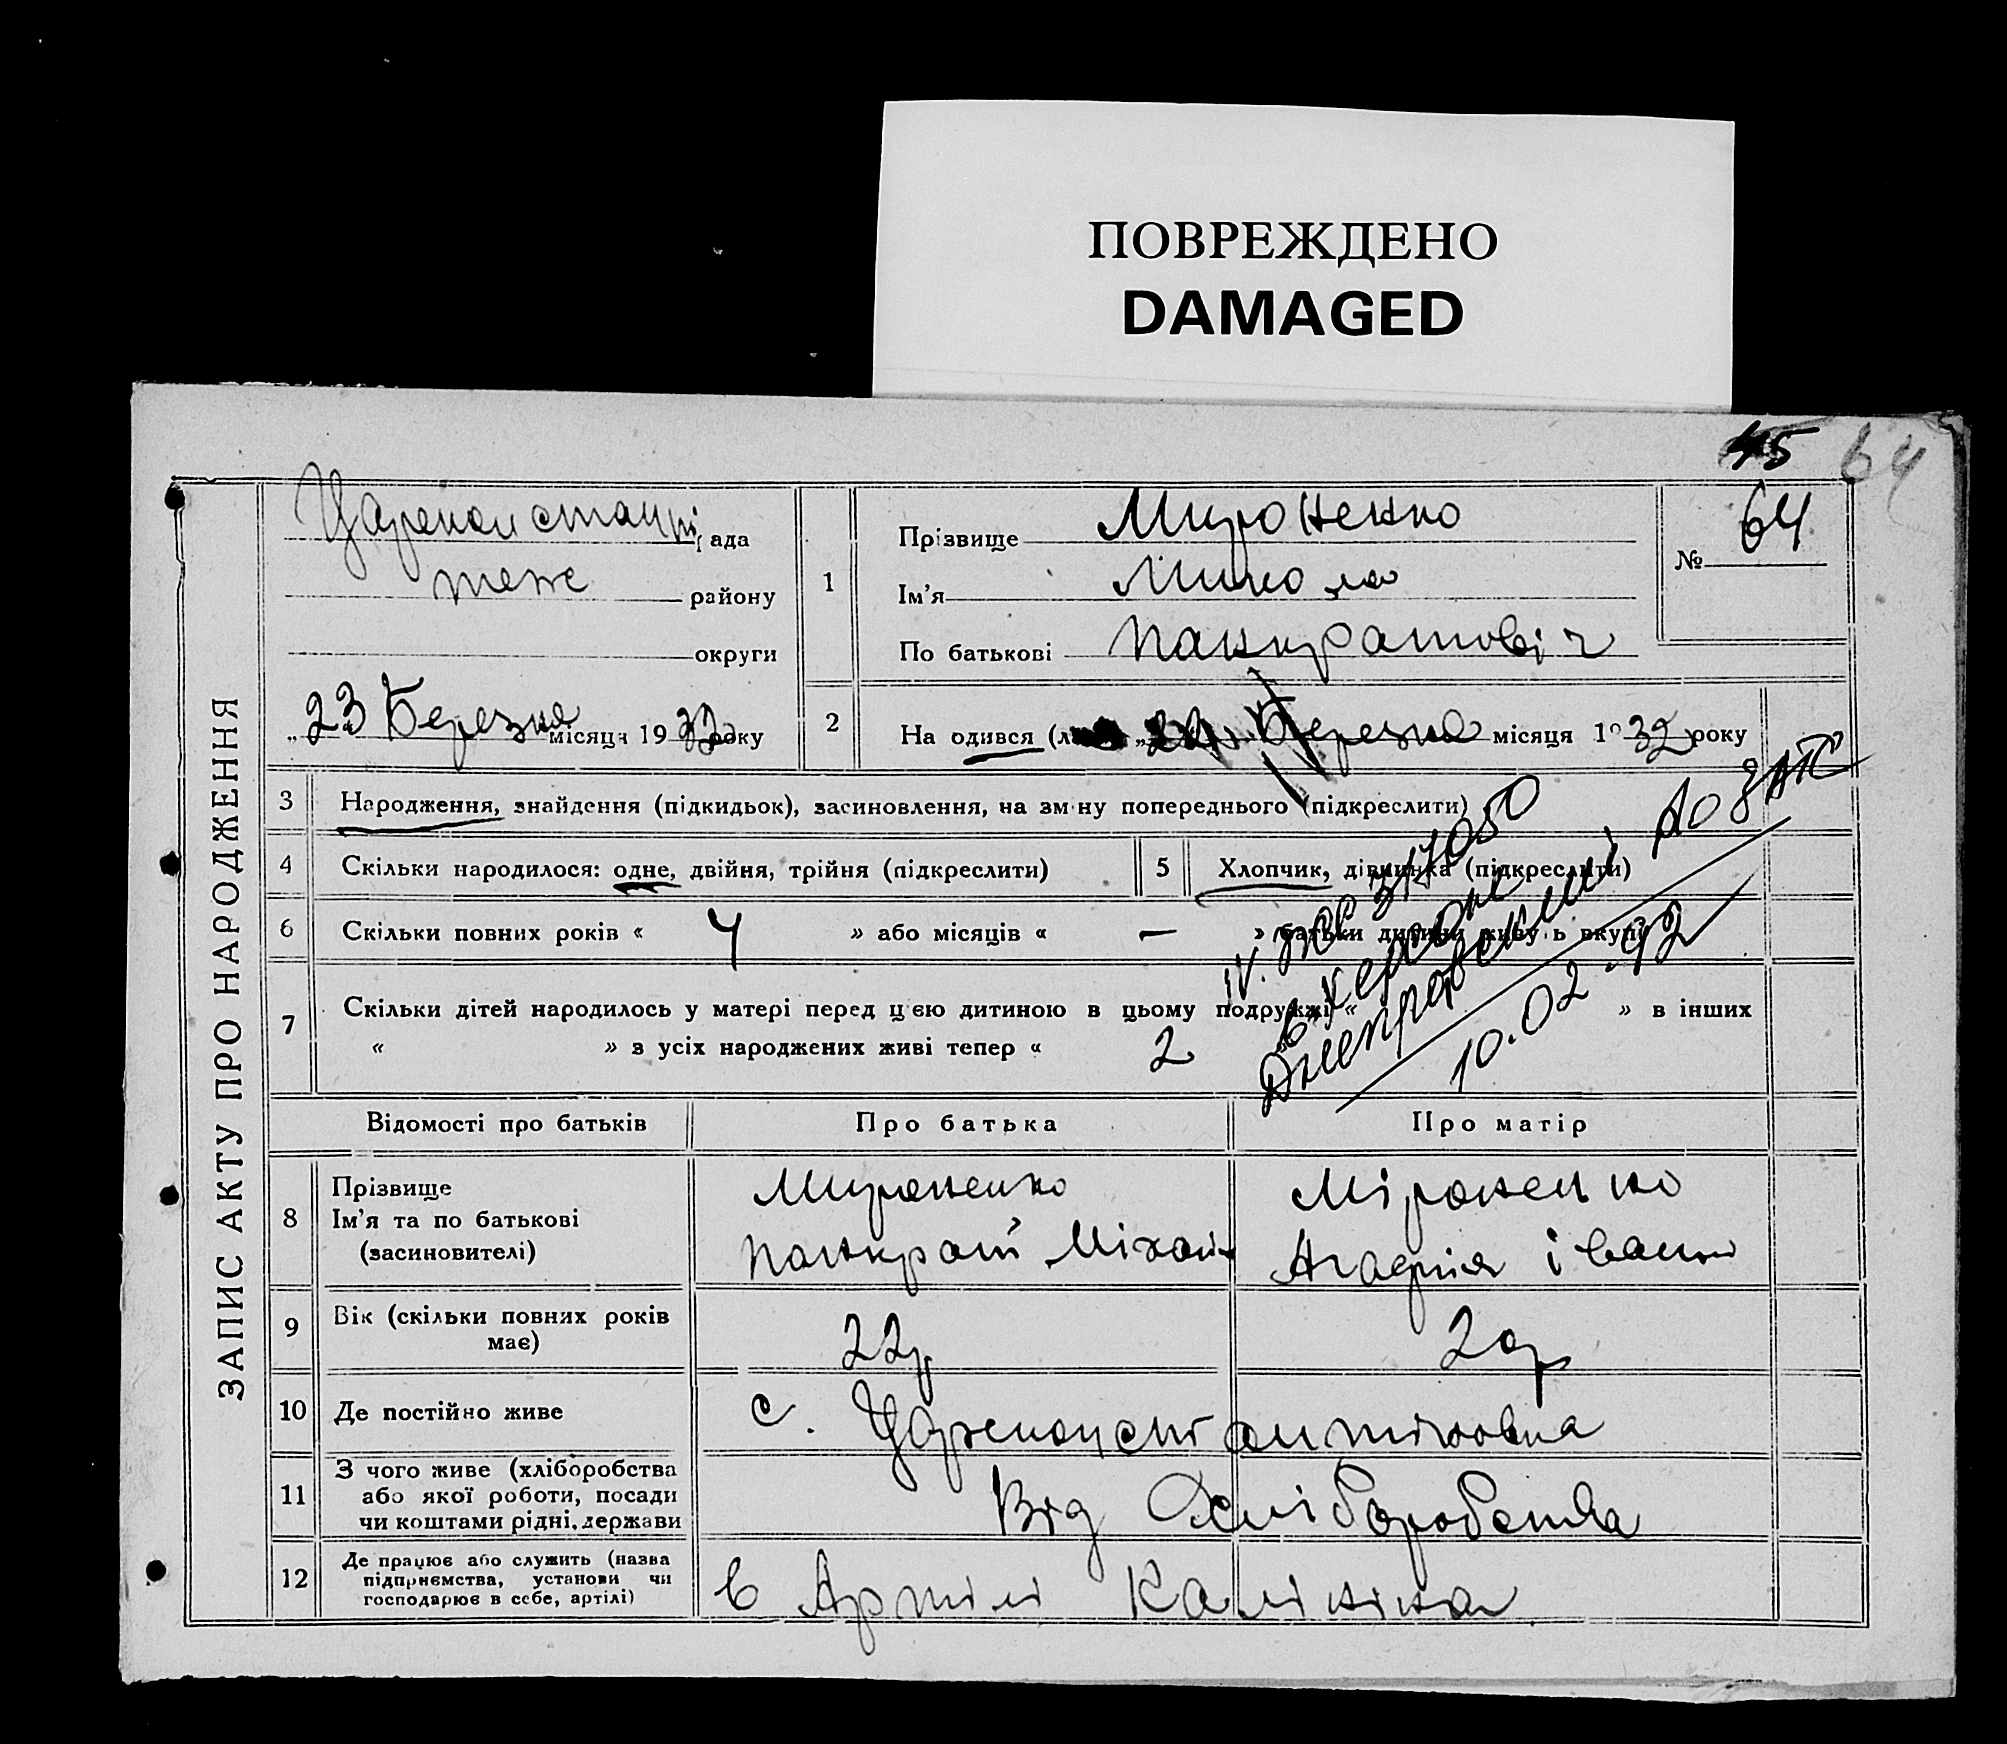 ПОВРЕЖДЕНО
DAMAGED
45 64
ЗАПИС АКТУ ПРО НАРОДЖЕННЯ
Цареконстанті ада
теж району
округи
„23 Березня місяця 1932 року
1
Прізвище Мироненко
Ім'я Микола
По батькові Панкратовіч
№ 64
2 На одився Березня місяця 1932 року
3 Народження, знайдення (підкидьок), засиновлення, на зміну попереднього (підкреслити)
4 Скільки народилося: одне, двійня, трійня (підкреслити)
5 Хлопчик, дівчинка (підкреслити)
6 Скільки повних років « 4 » або місяців « — » батьки дитини живуть вкупі
7 Скільки дітей народилось у матері перед цією дитиною в цьому подружжі « » в інших
« » з усіх народжених живі тепер « 2
10.02.92
Відомості про батьків Про батька Про матір
8 Прізвище
Ім'я та по батькові
(засиновителі)
Мироненко
Панкрат Міхай
Міроненко
Агафія Іванні
9 Вік (скільки повних років
має)
22р. 20р
10 Де постійно живе с. Цареконстантіновка
11 З чого живе (хліборобства
або якої роботи, посади
чи коштами рідні, держави
Від Хліборобства
12 Де працює або служить (назва
підприємства, установи чи
господарює в себе, артілі)
в Артілі Калініна